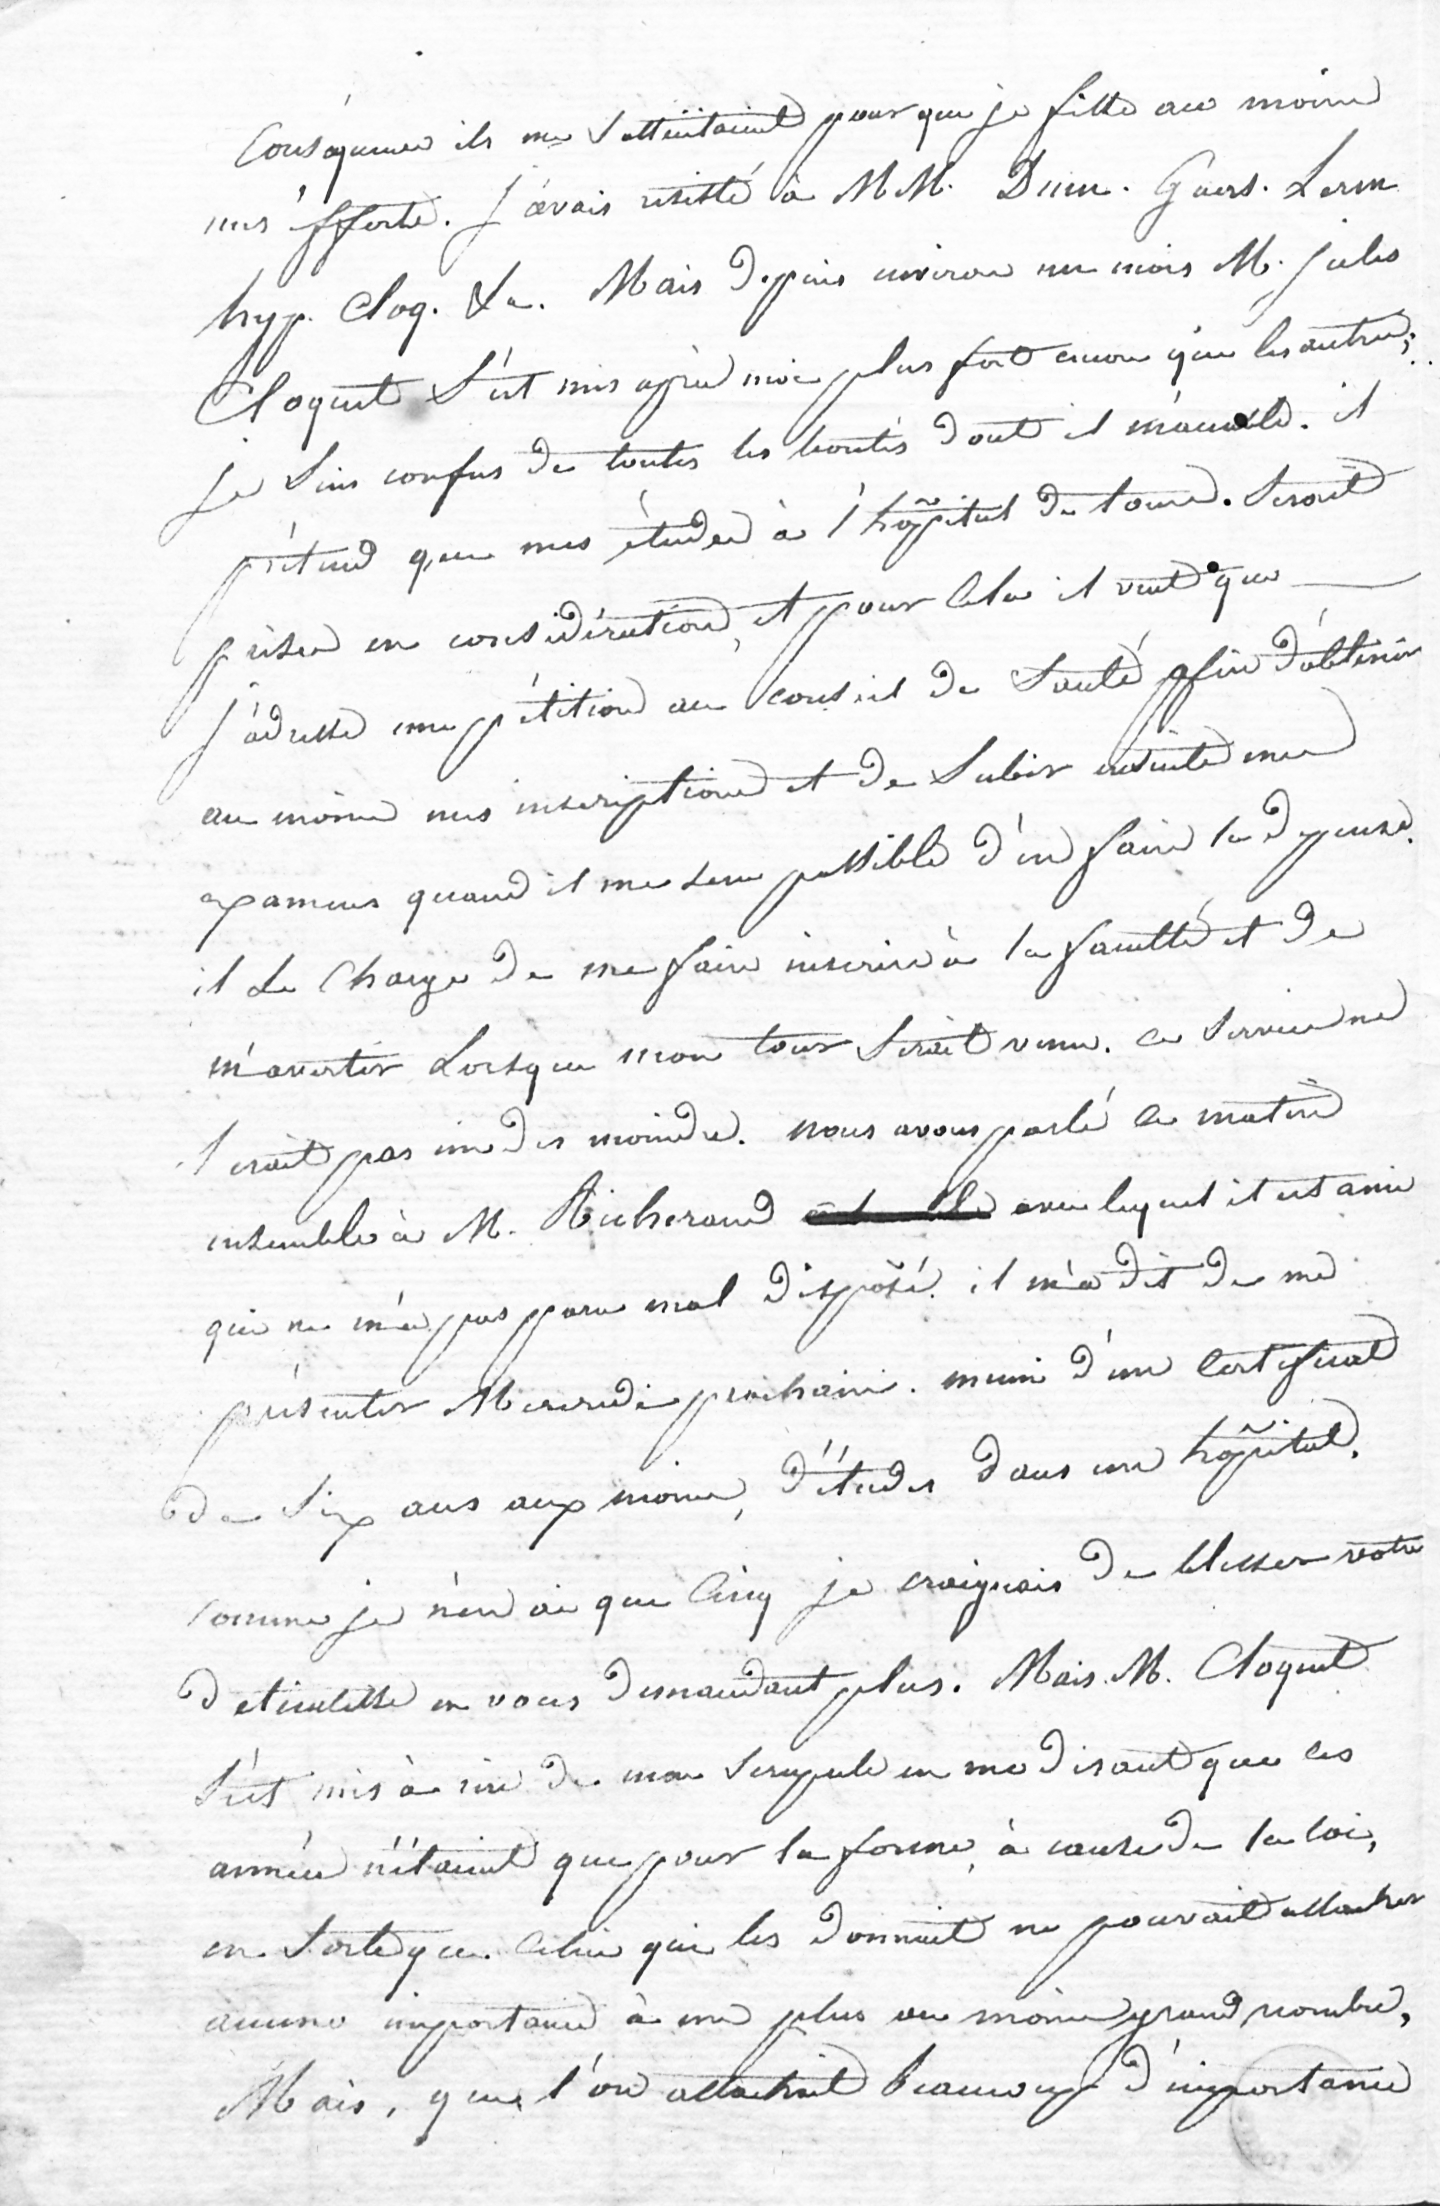 Conséquence ils me sollicitaient pour que je fisse au moins
mes éfforts. j'avais résisté à MM. Dum. Guers. Lerm
hyp. Cloq. &a. Mais depuis environ un mois M. jules
Cloquet s'est mis après moi plus fort encore que les autres;
je suis confus de toutes les bontés dont il m'accable. il
prétend que mes études à l'hôpital de tours. seront
prises en considération, et pour cela il veut que
j'adresse une pétition au conseil de santé affin d'obtenir
au moins mes inscriptions et de subir ensuite mes
examens quand il me sera possible d'en faire la dépense.
il se charge de me faire inscrire à la faculté et de
m'avertir Lorsque mon tour serait venu. ce service ne
serait pas un des moindres. nous avons parlé ce matin
ensemble à M. Richerand avec lequel il est ami
qui ne m'a pas paru mal disposé. il m'a dit de me
présenter Mercredi prochain. muni d'un certificat
de six ans aux moins, d'études dans un hôpital.
comme je n'en ai que cinq je craignais de blesser votre
délicatesse en vous demandant plus. Mais M. Cloquet
s'est mis à rire de mon scrupule en me disant que ces
années n'étaient que pour la forme, à cause de la loi,
en sorte que. celui qui les donnait ne pouvait attacher
aucune importance à un plus ou moins grand nombre,
Mais, que l'on attachait beaucoup d'importance